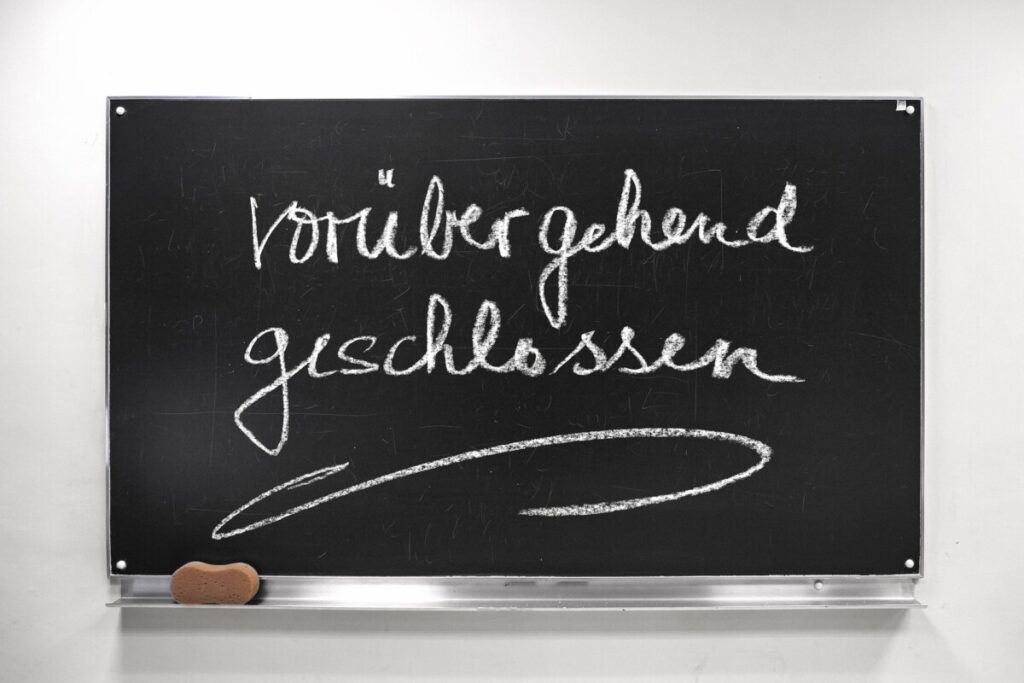 vorübergehend
geschlossen